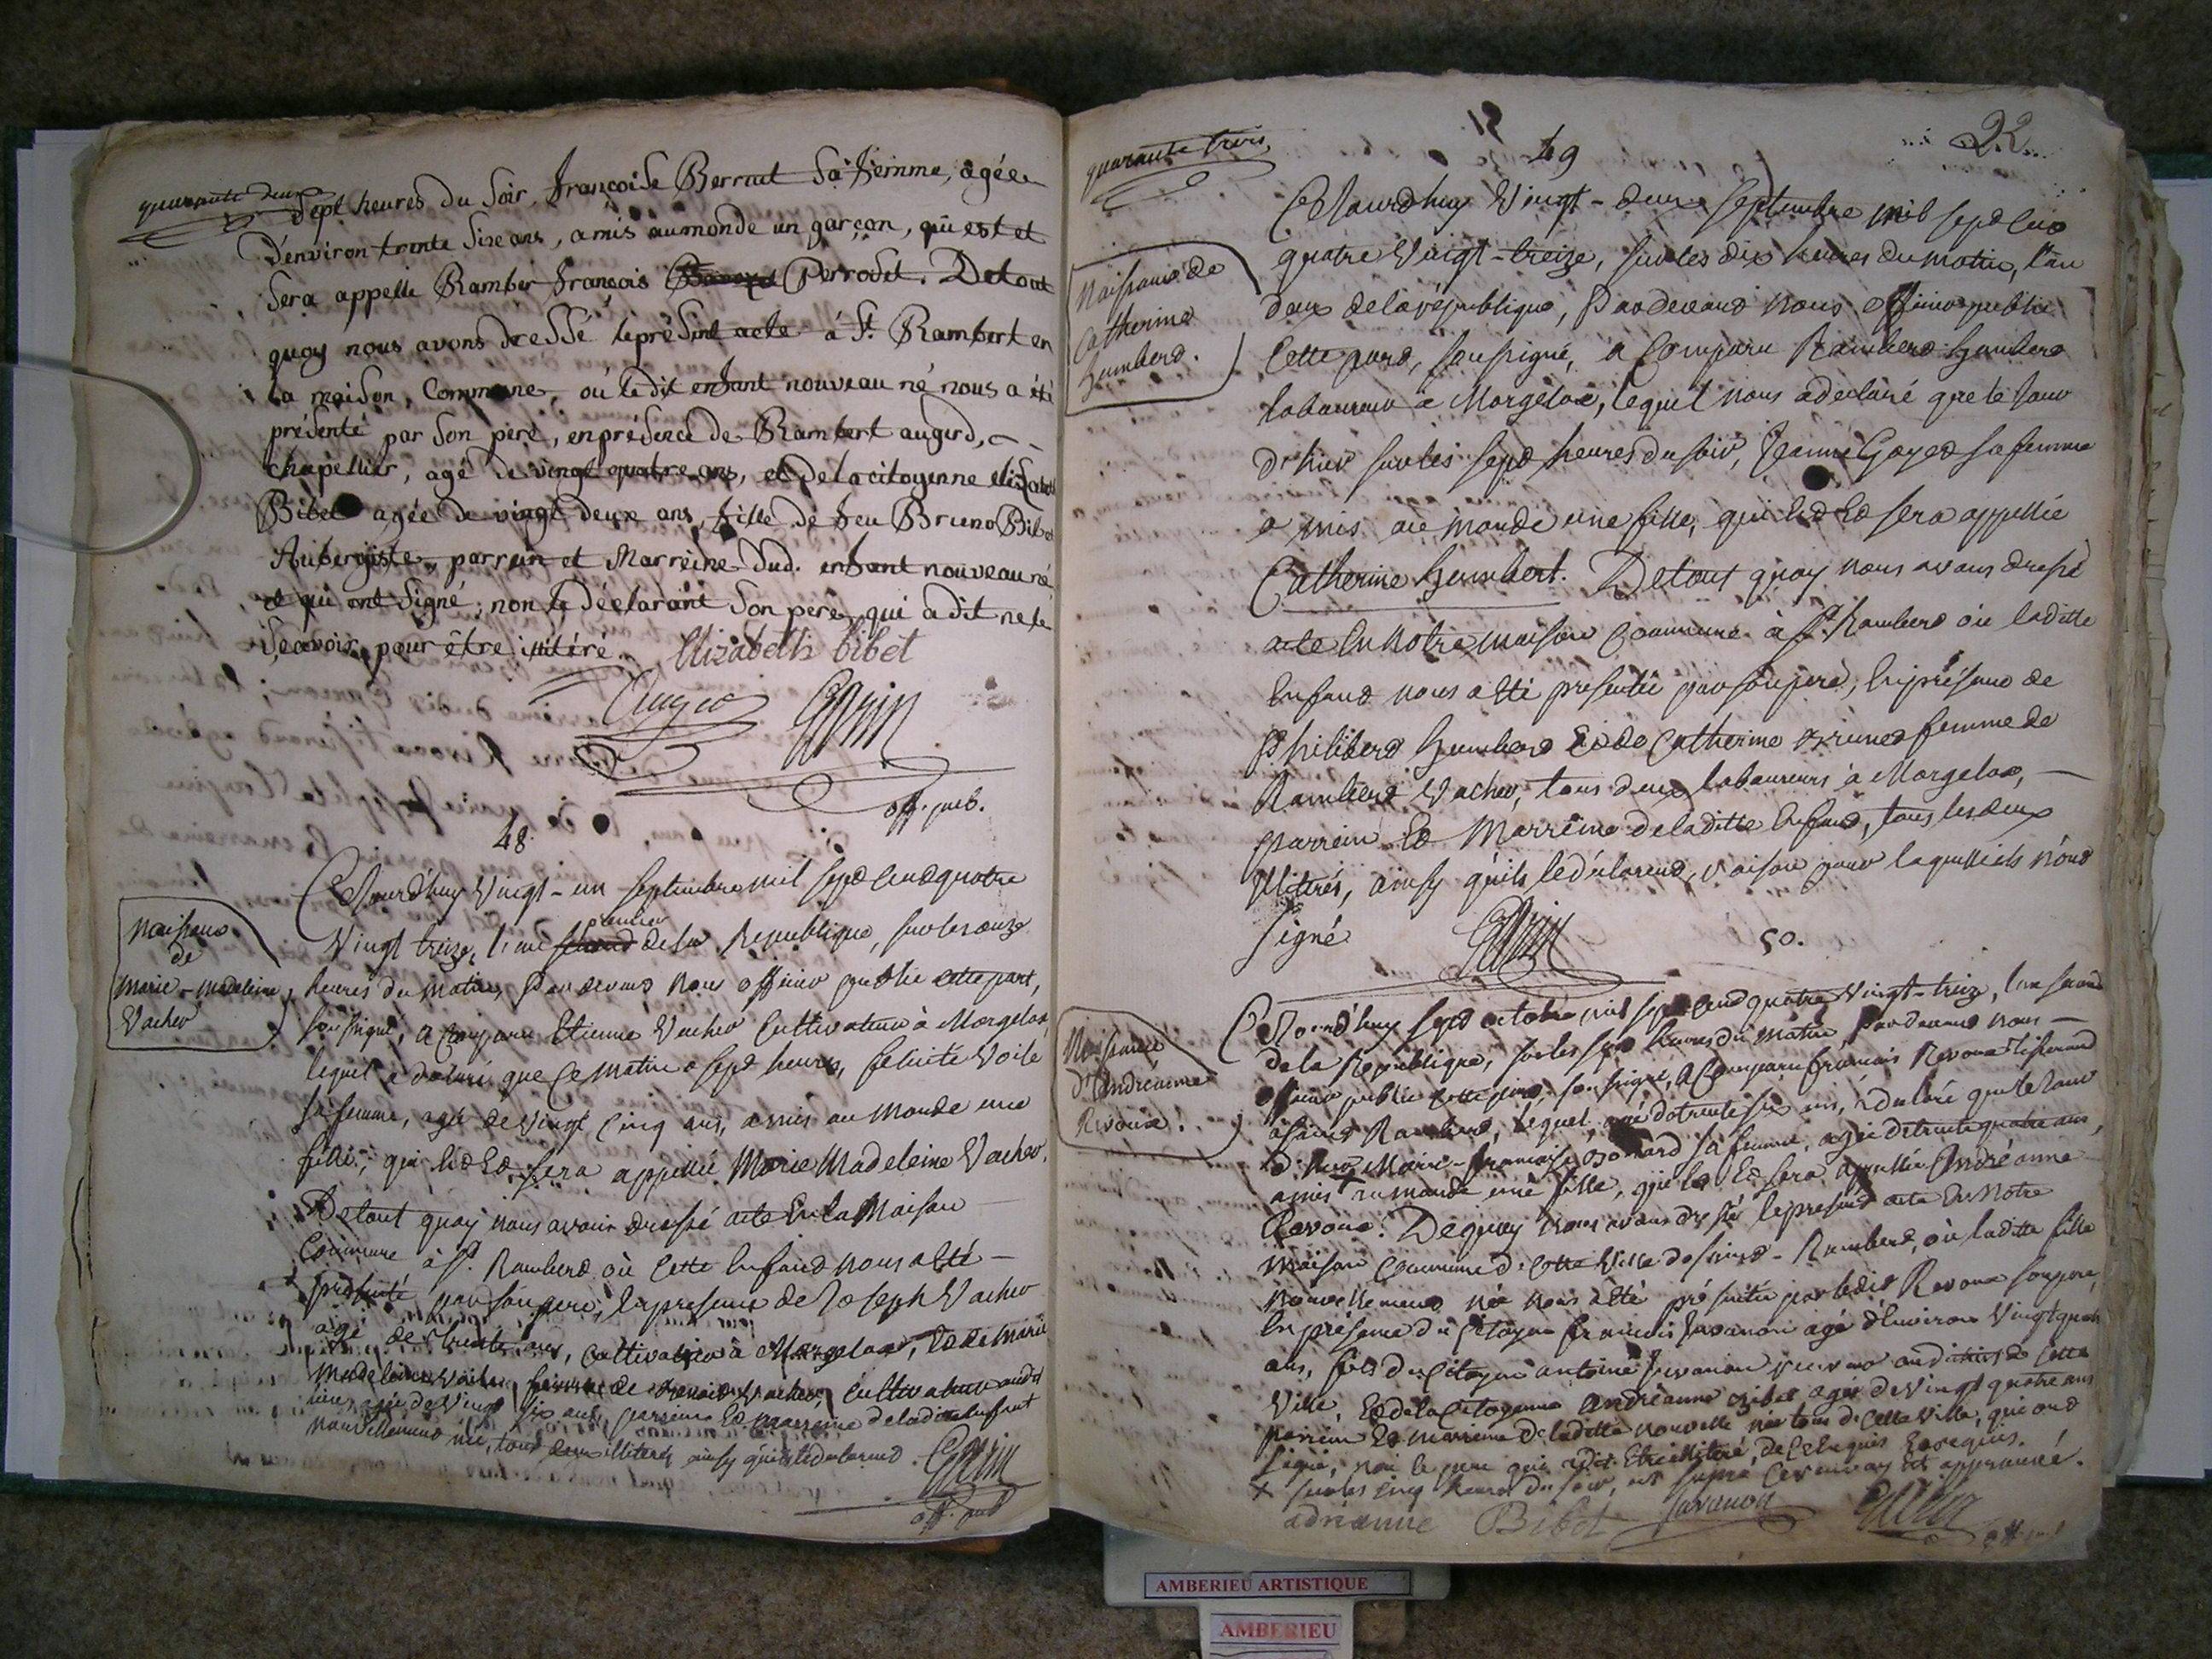 quarante deux
Sept heures du Soir, françoise Berrut Sa femme, agée
D'environ trente Sixe ans, a mis au monde un garçon, qui est et
Sera appelle Rambert françois Perrodet. De tout
quoy nous avons dressé le présent acte à St. Rambert en
la maison, Commune, où le dit enfant nouveau né nous a été
présenté par Son pere, en présence de Rambert augerd,
chapellier, agé de vingt quatre ans, et de la citoyenne elisabeth
Bibet agée de vingt deux ans, fille de feu Bruno Bibet
Aubergiste, parrain et Marreine dud. enfant nouveau né
et qui ont Signé, non le déclarant Son pere, qui a dit ne le
Scavoir, pour être illitéré. Elizabeth bibet
off. pub.
48.
Cejourd'huy Vingt-un Septembre mil sept Cend quatre
Vingt treize, l'an premier de la Republique, sur les onze
naissance
de
Marie-Madeleine
Vacher
heures du matin, Pardevant nous officier public cette part,
soussigné, a Comparu Etienne Vacher Cultivateur à Morgelas,
lequel a declaré que Ce matin a sept heures, felicité Voile
sa femme, agée de Vingt Cinq ans, a mis au Monde une
fille, qui Est Et Sera appellée Marie Madeleine Vacher.
De tout quoy nous avons dressé acte En la Maison
Commune à St. Rambert où Cette Enfand nous a Eté
présenté par son pere, En presence de Joseph Vacher
agé de trente ans, cultivateur à Morgelas, Et de Marie
Madeleine Voile, femme de Vacher, cultivateur audit
lieu, agée de Vingt six ans, parrein Et Marreine de la ditte Enfant
nouvellement née, tous deux illiterés ainsy qu'ils le declarent.
off. pub
quarante trois
49
22
naissance de
Catherine
humbert.
Cejourd'huy Vingt-deux Septembre mil Sept Cent
quatre Vingt-treize, sur les dix heures du matin, l'an
deux de la république, Pardevant nous officier public
Cette part, soussigné, a Comparu Rambert humbert
laboureur à Morgelas, lequel nous a declaré que le Jour
d'hier sur les sept heures du soir, Jeanne Goyet sa femme
a mis au monde une fille, qui Est Et sera appellée
Catherine humbert. De tout quoy nous avons dressé
acte En notre maison Commune à St. Rambert où laditte
Enfand nous a Eté présentée par son pere, En présence de
Philibert humbert Et de Catherine Brunet femme de
Rambert Vacher, tous deux laboureurs à Morgelas,
parrein Et Marreine de laditte Enfand, tous les deux
illiterés, ainsy qu'ils le déclarent, raison pour laquelle ils n'ont
signé
50.
Naissance
d'Andréanne
Revoux.
Cejourd'huy sept octobre mil sept Cend quatre Vingt-treize, l'an second
de la Republique, sur les sept heures du matin, Pardevant nous
officier public cette part, soussigné, a Comparu françois Revoux tisserand
à Saint Rambert, lequel, agé de trente six ans, a declaré que le Jour
d'hier Marie-françoise sa femme, agée de trente quatre ans,
a mis + au monde une fille, qui Est Et Sera appellée Andréanne
Revoux. De quoy nous avons dressé le present acte En Notre
Maison Commune de Cette Ville de Saint-Rambert, où laditte fille
nouvellement née nous a Eté présentée par ledit Revoux son pere,
En présence du Citoyen françois Juvanon agé d'Environ Vingt quatre
ans, fils du Citoyen antoine Juvanon de Cette
Ville, Et de la Citoyenne Andréanne Bibet agée de Vingt quatre ans
parrein Et marreine de laditte nouvelle née tous de Cette Ville, qui ont
signé, non le pere qui a dit Etre illiteré, de Ce Enquis Et requis.
+ sur les Cinq heures du soir, Ce renvoy Est approuvé.
adrianne Bibet Juvanon
AMBERIEU ARTISTIQUE
AMBERIEU